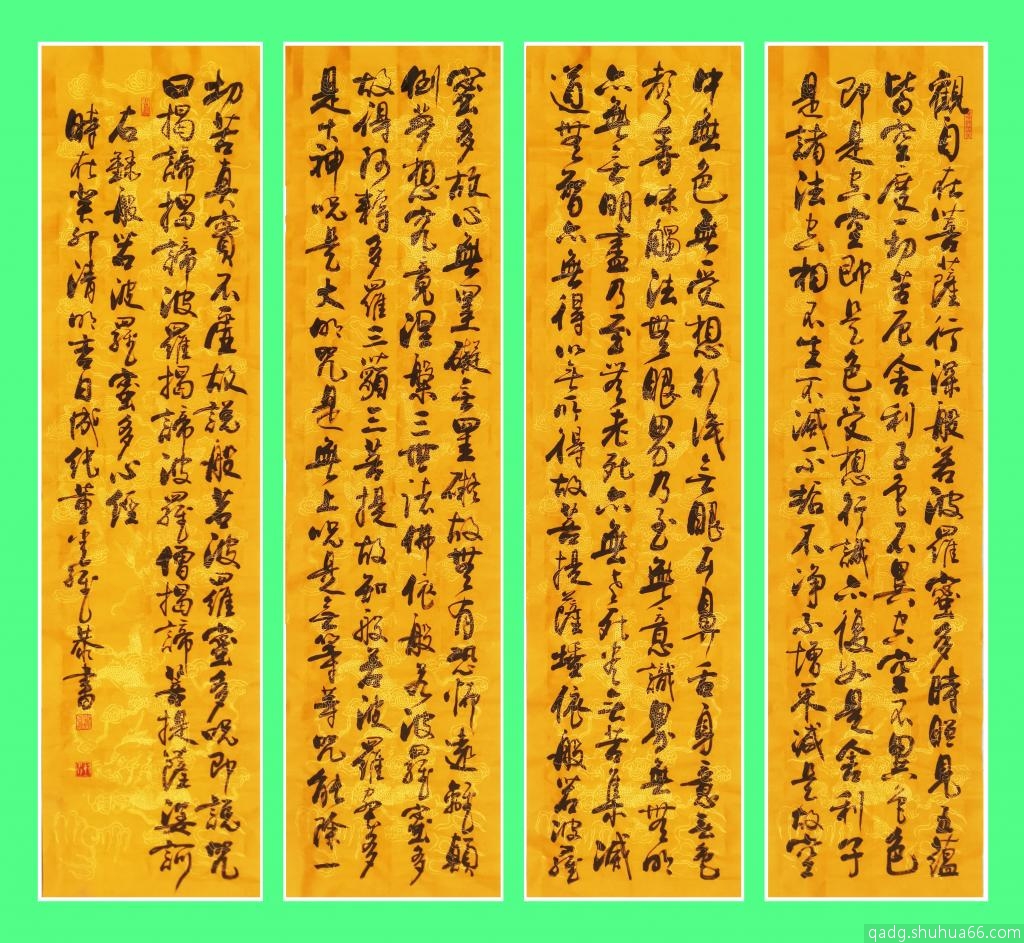 觀自在菩薩行深般若波羅蜜多時照見五蘊
皆空度一切苦厄舍利子色不異空空不異色色
即是空空即是色受想行識亦復如是舍利子
是諸法空相不生不滅不垢不淨不增不減是故空
中無色無受想行識無眼耳鼻舌身意無色
聲香味觸法無眼界乃至無意識界無無明
亦無無明盡乃至無老死亦無老死盡無苦集滅
道無智亦無得以無所得故菩提薩埵依般若波羅
蜜多故心無罣礙無罣礙故無有恐怖遠離顛
倒夢想究竟涅槃三世諸佛依般若波羅蜜多
故得阿耨多羅三藐三菩提故知般若波羅蜜多
是大神咒是大明咒是無上咒是無等等咒能除一
切苦真實不虛故說般若波羅蜜多咒即說咒
曰揭諦揭諦波羅揭諦波羅僧揭諦菩提薩婆訶
右錄般若波羅蜜多心經
時在癸卯清明吉日成紀董恭書
qadg.shuhua66.com